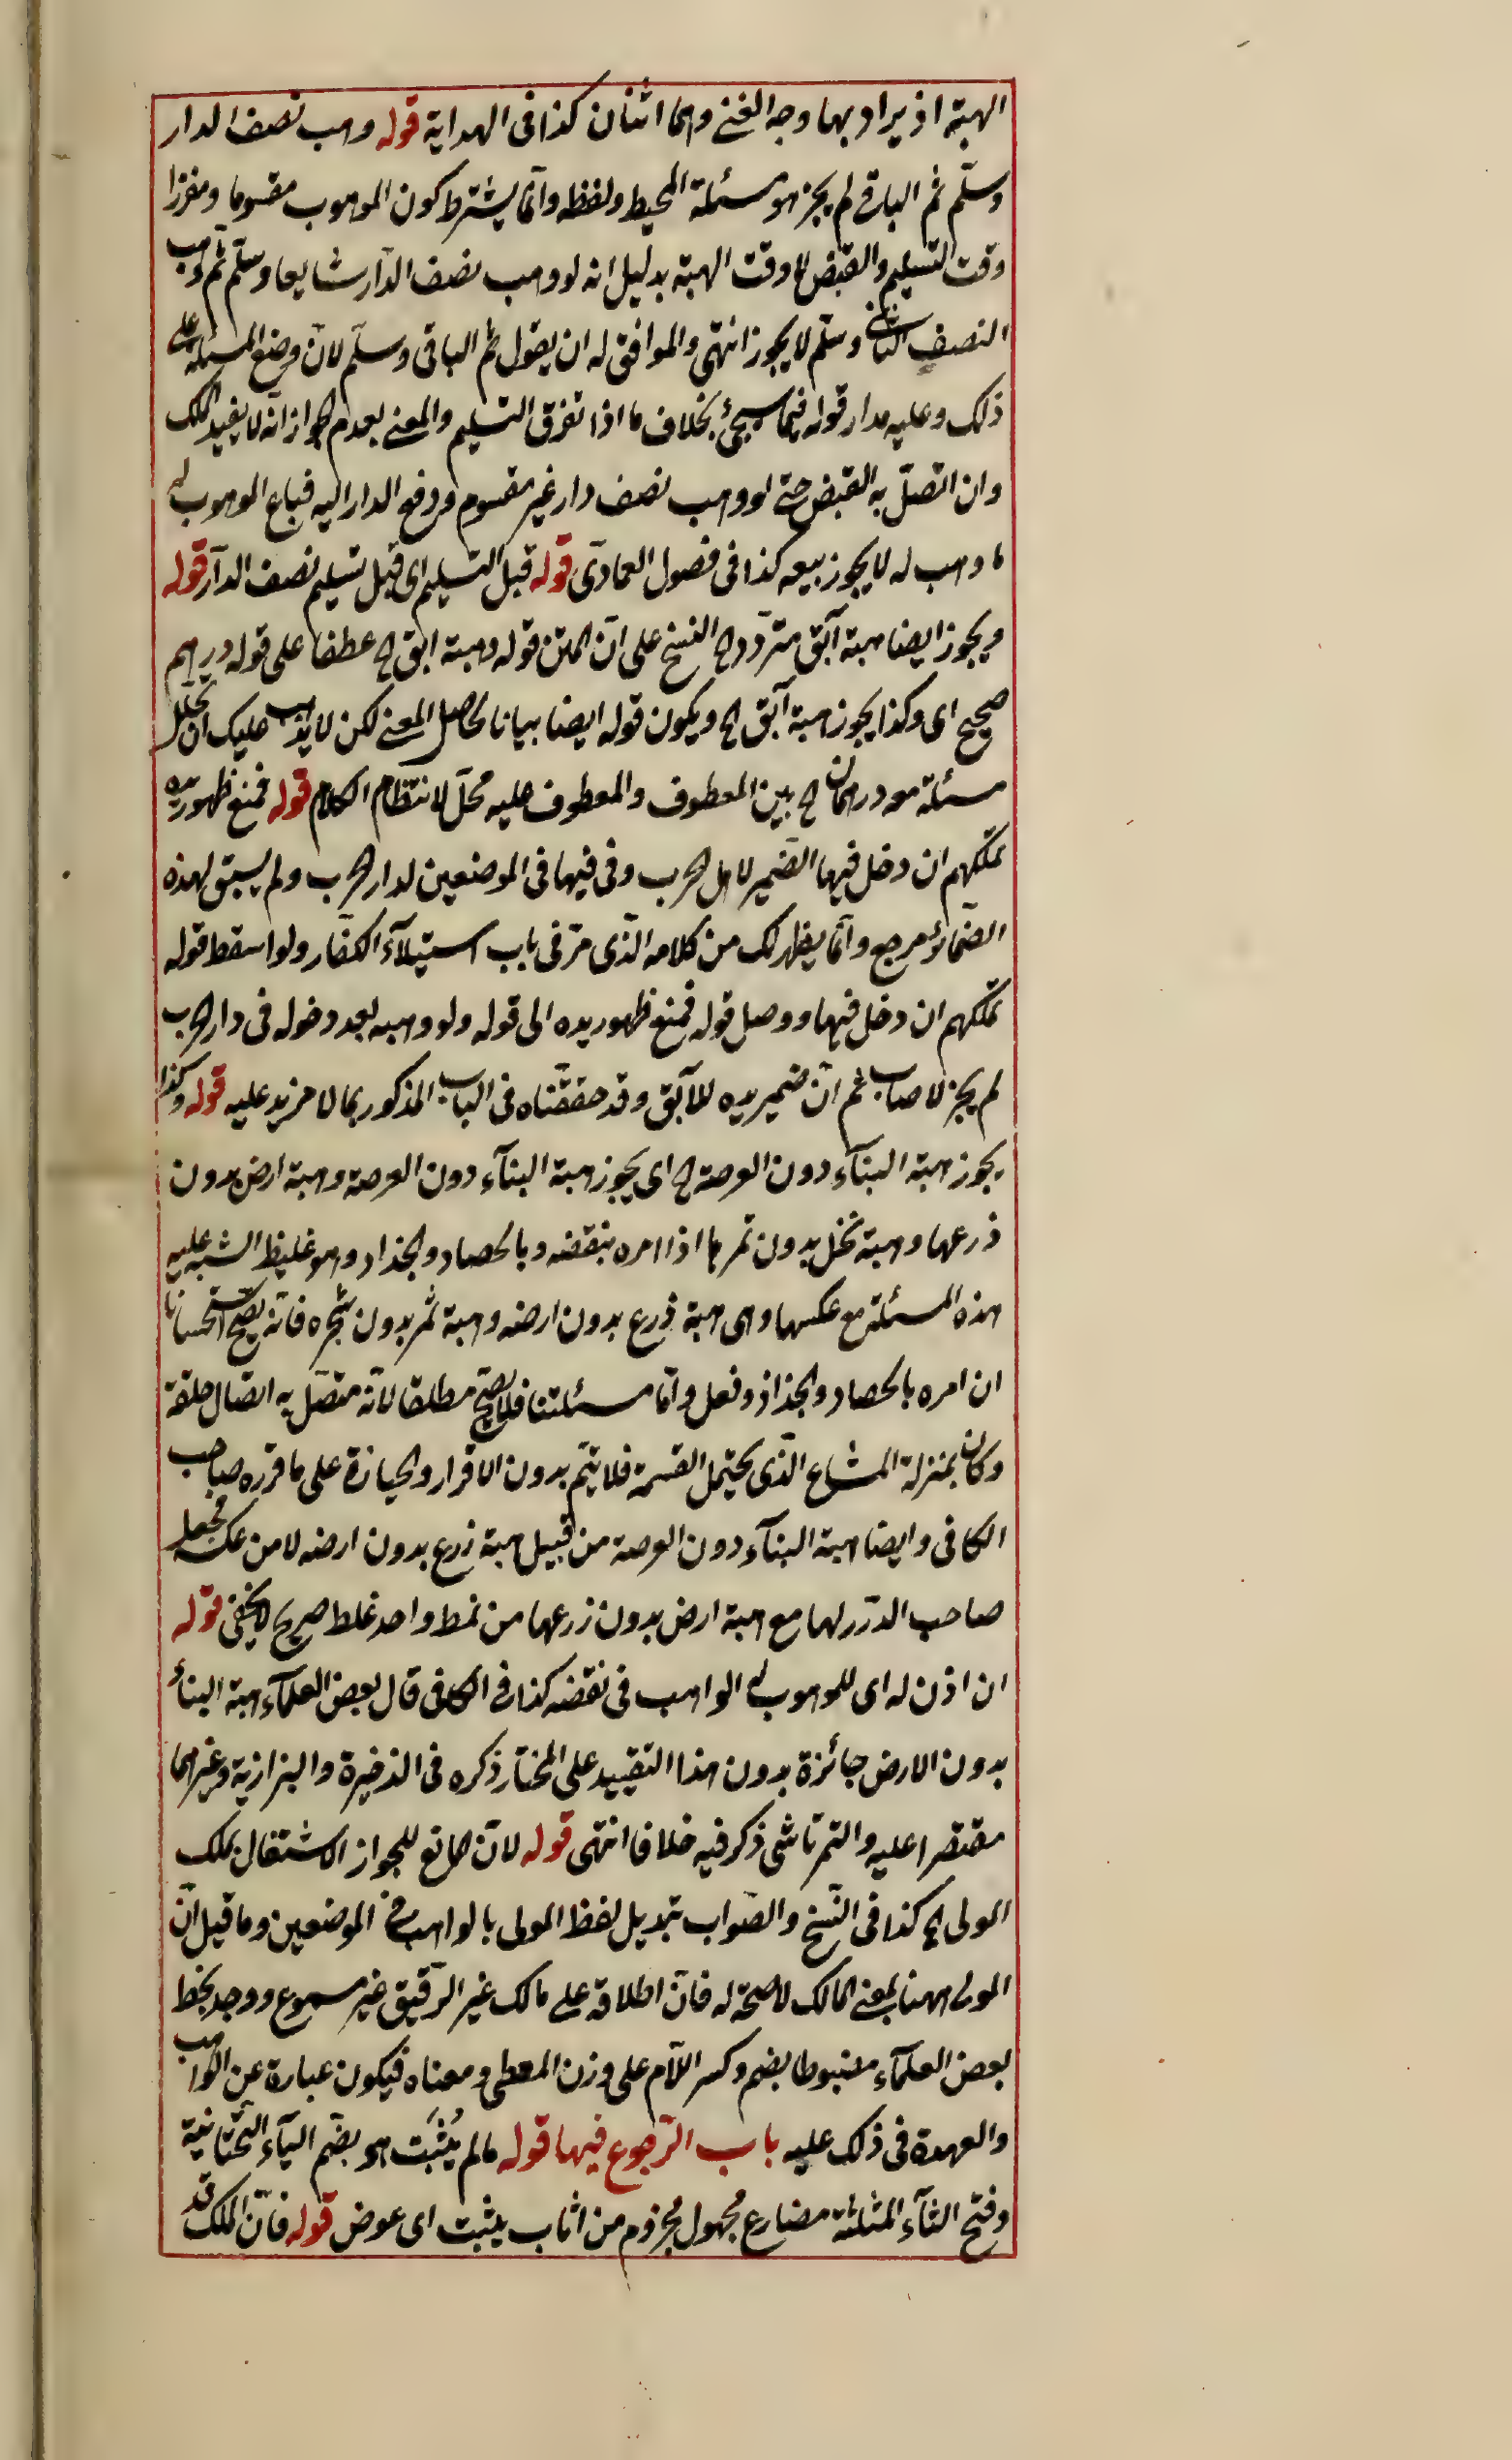 الهبة اذ يراد بها وجه الغنى وهما اثنان كذا فى الهداية قوله وهب نصف الدار
وسلّم ثم الباقى لم يجز هو مسئلة المحيط ولفظه وانّما يشترط كون الموهوب مقسوما ومفرزا
وقت التسليم والقبض لا وقت الهبة بدليل انه لو وهب نصف الدّار شايعا وسلّم ثم وهب
النصف الثانى وسلّم لا يجوز انتهى والموافق له ان يقول ثم الباقى وسلّم لانّ وضع المسئلة على
ذلك وعليه مدار قوله فيما سيجئ بخلاف ما اذا تفرق التسليم والمعنى بعدم الجواز انه لا يفيد الملك
وان اتّصل به القبض حتى لو وهب نصف دار غير مقسوم ودفع الدار اليه فباع الموهوب له
ما وهب له لا يجوز بيعه كذا فى فصول العمادى قوله قبل التسليم اى قبل تسليم نصف الدّار قوله
ويجوز ايضا هبة آبق متردد الخ النسخ على انّ المتن قوله وهبة ابق الخ عطفا على قوله درهم
صحيح اى وكذا يجوز هبة آبق الخ ويكون قوله ايضا بيانا لحاصل المعنى لكن لا يذهب عليك ان تخلّل
مسئلة معه درهمان الخ بين المعطوف والمعطوف عليه مخلّ لانتظام الكلام قوله فمنع ظهور يده
تملكهم ان دخل فيها الضّمير لاهل الحرب وفى فيها فى الموضعين لدار الحرب ولم يسبق لهذه
الضمائر مرجع وانّما يظهر لك من كلامه الّذى مرّ فى باب استيلآء الكفّار ولو اسقط قوله
تملكهم ان دخل فيها ووصل قوله فمنع ظهور يده الى قوله ولو وهبه بعد دخوله فى دار الحرب
لم يجز لاصاب ثم انّ ضمير يده للآبق وقد حققّناه فى الباب المذكور بما لا مزيد عليه قوله وكذا
يجوز هبة البنآء دون العرصة الخ اى يجوز هبة البنآء دون العرصة وهبة ارض بدون
زرعها وهبة نخل بدون تمرها اذا امره بنقضه وبالحصاد والجذاد وهو غليظ اشتبه عليه
هذه المسئلة مع عكسها وهى هبة زرع بدون ارضه وهبة ثمر بدون شجره فانه يصحّ استحسانا
ان امره بالحصاد والجذاذ وفعل وامّا مسئلتنا فلا يصحّ مطلقا لانّه متّصل به اتصال خلقة
وكان بمنزلة المشاع الّذى يحتمل القسمة فلا يتمّ بدون الافراز والحيازة على ما قرره صاحب
الكافى وايضا هبة البنآء دون العرصة من قبيل هبة زرع بدون ارضه لا من عكسه فجعل
صاحب الدّرر لها مع هبة ارض بدون زرعها من نمط واحد غلط صريح لا يخفى قوله
ان اذن له اى للموهوب له الواهب فى نقضه كذا فى الكافى قال بعض العلمآء هبة البنآء
بدون الارض جائزة بدون هذا التقييد على المختار ذكره فى الذخيرة والبزازية وغيرهما
مقتصرا عليه والتمرتاشى ذكر فيه خلافا انتهى قوله لانّ المانع للجواز الاشتغال بملك
المولى الخ كذا فى النّسخ والصّواب تبديل لفظ المولى بالواهب فى الموضعين وما قيل انّ
المولى ههنا بمعنى المالك لا صحة له فانّ اطلاقه على مالك غير الرّقيق غير مسموع ووجد بخط
بعض العلمآء مضبوطا بضم وكسر اللّام على وزن المعطى ومعناه فيكون عبارة عن الواهب
والعهدة فى ذلك عليه باب الرّجوع فيها قوله ما لم يُثَبْ هو بضّم اليآء التّحتانية
وفتح الثآء المثلثة مضارع مجهول مجزوم من اثاب يثيب اى عوض قوله فانّ الملك قد